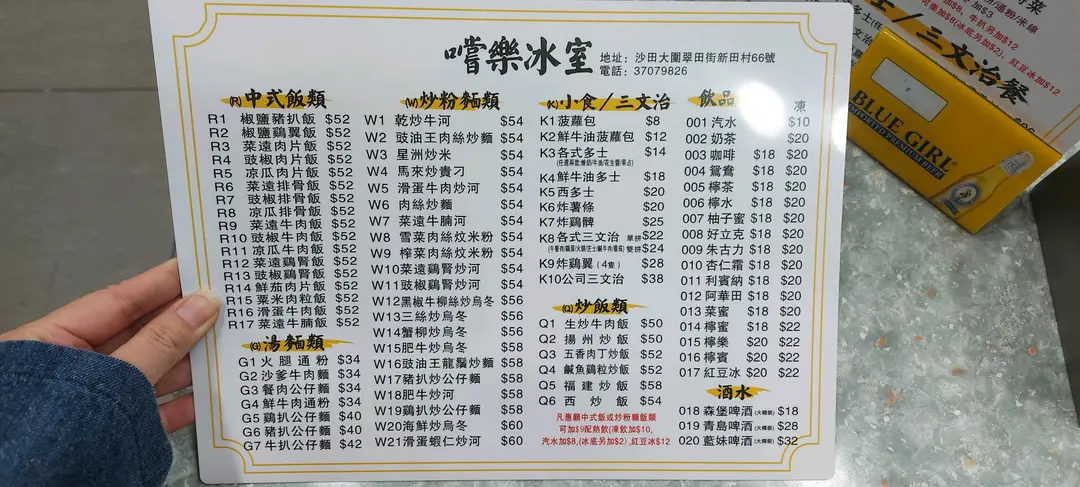 嚐樂冰室
地址：沙田大圍翠田街新田村66號
電話：37079826
(R)中式飯類
R1 椒鹽豬扒飯 $52
R2 椒鹽鷄翼飯 $52
R3 菜遠肉片飯 $52
R4 豉椒肉片飯 $52
R5 凉瓜肉片飯 $52
R6 菜遠排骨飯 $52
R7 豉椒排骨飯 $52
R8 凉瓜排骨飯 $52
R9 菜遠牛肉飯 $52
R10 豉椒牛肉飯 $52
R11 凉瓜牛肉飯 $52
R12 菜遠鷄腎飯 $52
R13 豉椒鷄腎飯 $52
R14 鮮茄肉片飯 $52
R15 粟米肉粒飯 $52
R16 滑蛋牛肉飯 $52
R17 菜遠牛腩飯 $52
(G)湯麵類
G1 火腿通粉 $34
G2 沙爹牛肉麵 $34
G3 餐肉公仔麵 $34
G4 鮮牛肉通粉 $34
G5 鷄扒公仔麵 $40
G6 豬扒公仔麵 $40
G7 牛扒公仔麵 $42
(W)炒粉麵類
W1 乾炒牛河 $54
W2 豉油王肉絲炒麵 $54
W3 星洲炒米 $54
W4 馬來炒貴刁 $54
W5 滑蛋牛肉炒河 $54
W6 肉絲炒麵 $54
W7 菜遠牛腩河 $54
W8 雪菜肉絲炆米粉 $54
W9 榨菜肉絲炆米粉 $54
W10 菜遠鷄腎炒河 $54
W11 豉椒鷄腎炒河 $54
W12 黑椒牛柳絲炒烏冬 $56
W13 三絲炒烏冬 $56
W14 蟹柳炒烏冬 $56
W15 肥牛炒烏冬 $58
W16 豉油王龍鬚炒麵 $58
W17 豬扒炒公仔麵 $58
W18 肥牛炒河 $58
W19 鷄扒炒公仔麵 $58
W20 海鮮炒烏冬 $60
W21 滑蛋蝦仁炒河 $60
(K)小食/三文治
K1 菠蘿包 $8
K2 鮮牛油菠蘿包 $12
K3 各式多士 $14
K4 鮮牛油多士 $18
K5 西多士 $20
K6 炸薯條 $20
K7 炸鷄髀 $25
K8 各式三文治 單拼 $22
雙拼 $24
K9 炸鷄翼 (4隻) $28
K10 公司三文治 $38
(Q)炒飯類
Q1 生炒牛肉飯 $50
Q2 揚州炒飯 $50
Q3 五香肉丁炒飯 $52
Q4 鹹魚鷄粒炒飯 $52
Q5 福建炒飯 $58
Q6 西炒飯 $54
凡惠顧中式飯或炒粉麵飯類
可加$9配熱飲(凍飲加$10、
汽水加$8,(冰底另加$2),紅豆冰$12
飲品
凍
001 汽水 $10
002 奶茶 $20
003 咖啡 $18 $20
004 鴛鴦 $18 $20
005 檸茶 $18 $20
006 檸水 $18 $20
007 柚子蜜 $18 $20
008 好立克 $18 $20
009 朱古力 $18 $20
010 杏仁霜 $18 $20
011 利賓納 $18 $20
012 阿華田 $18 $20
013 菜蜜 $18 $20
014 檸蜜 $18 $22
015 檸樂 $20 $22
016 檸賓 $20 $22
017 紅豆冰 $20 $22
酒水
018 森堡啤酒(大樽裝) $18
019 青島啤酒(大樽裝) $28
020 藍妹啤酒(大樽裝) $32
BLUE GIRL
IMPORTED PREMIUM BEER
/三文治餐